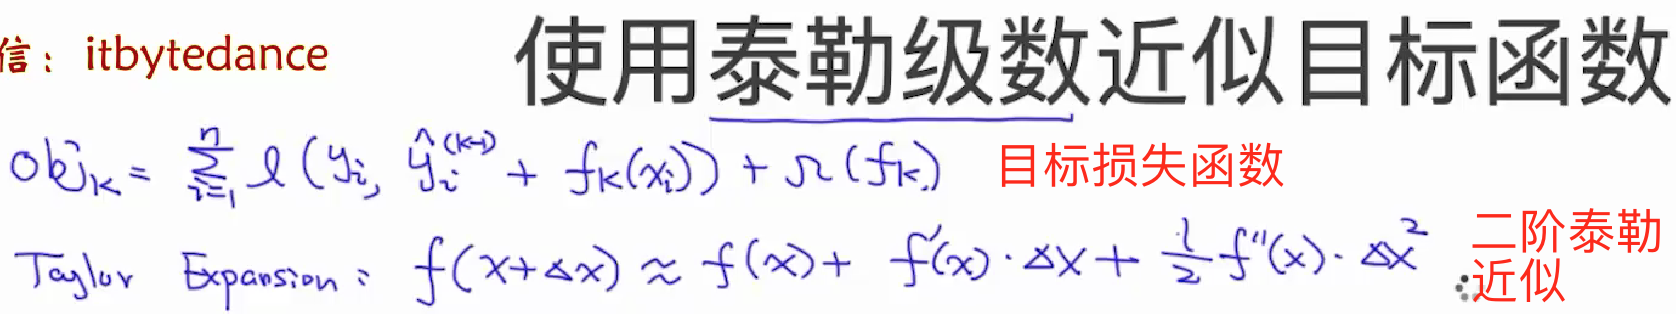 信：itbytedance
使用泰勒级数近似目标函数
Obj_k = \sum_{i=1}^{n} l(y_i, \hat{y}_i^{(k-1)} + f_k(x_i)) + Ω(f_k)
目标损失函数
Taylor Expansion: f(x+Δx) ≈ f(x) + f'(x)·Δx + \frac{1}{2} f''(x)·Δx^2
二阶泰勒
近似